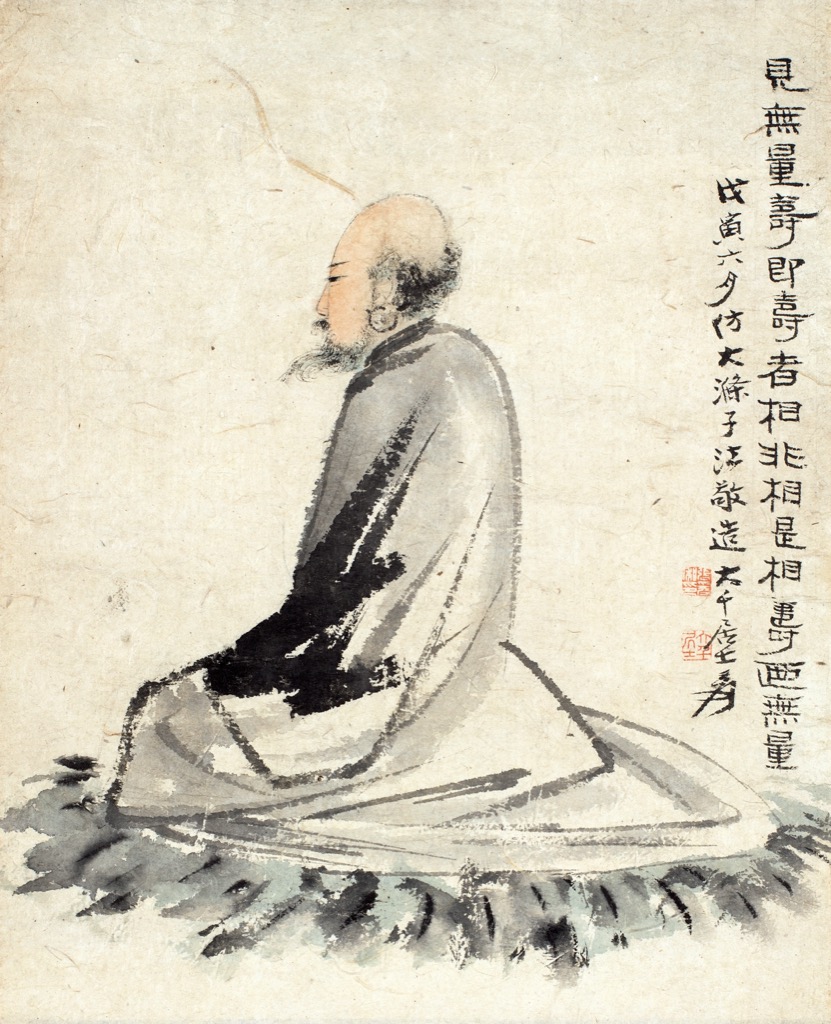 見無量壽即壽者相非相是相壽酉無量
戊寅六月仿大滌子法敬造大千居士爰